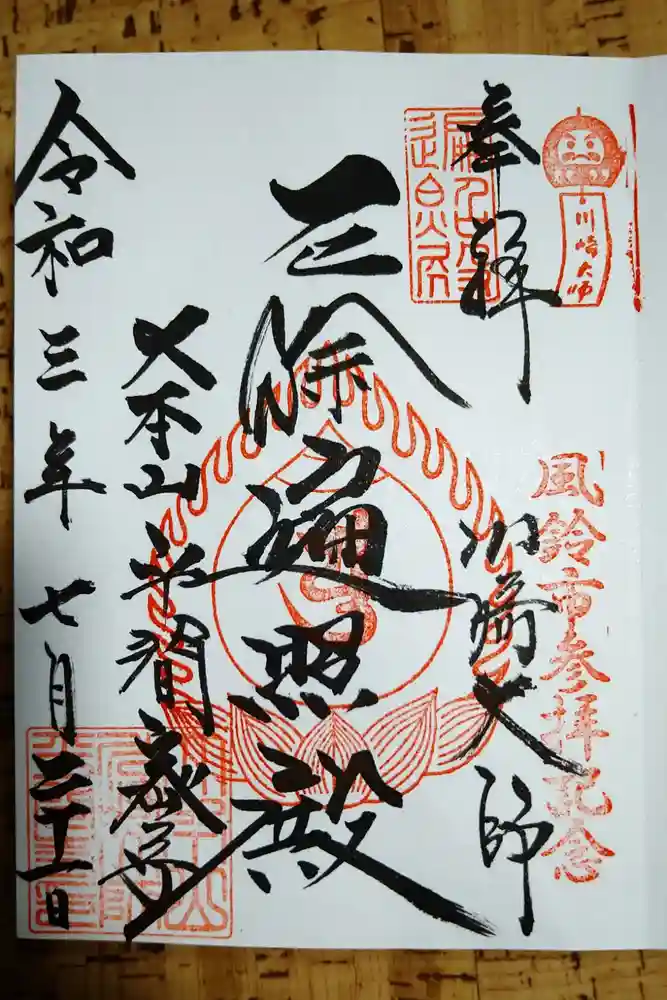 川崎大師
風鈴市参拝記念
奉拝
川崎大師
厄除遍照殿
大本山平間寺
令和三年七月二十一日